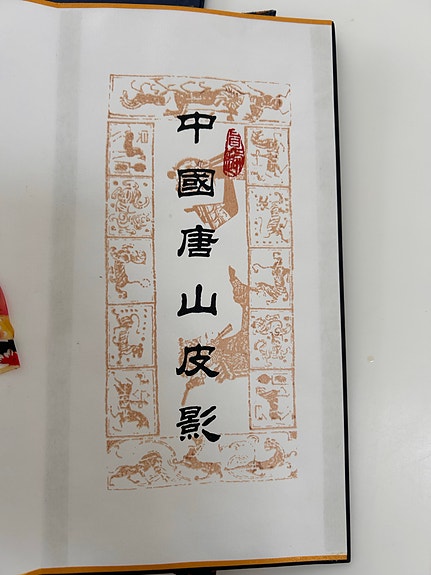 中國唐山皮影